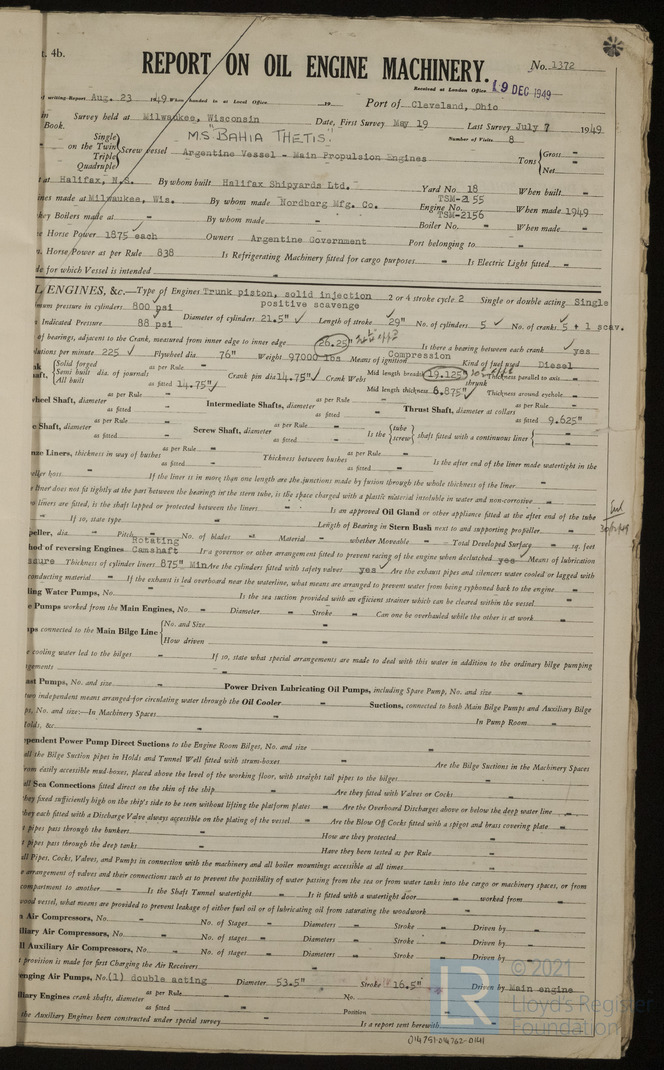 t. 4b.
REPORT ON OIL ENGINE MACHINERY.
No. 1372
Received at London Office 19 DEC 1949
of writing Report Aug. 23 1949 When handed in at Local Office 19 Port of Cleveland, Ohio
in Survey held at Milwaukee, Wisconsin Date, First Survey May 19 Last Survey July 7 1949
Book. Number of Visits 8
on the Single Twin Triple Quadruple Screw vessel MS "BAHIA THETIS" Argentine Vessel - Main Propulsion Engines Tons Gross Net
t at Halifax, N.S. By whom built Halifax Shipyards Ltd. Yard No. 18 When built
ines made at Milwaukee, Wis. By whom made Nordberg Mfg. Co. Engine No. TSM-2155 TSM-2156 When made 1949
key Boilers made at By whom made Boiler No. When made
e Horse Power 1875 each Owners Argentine Government Port belonging to
. Horse Power as per Rule 838 Is Refrigerating Machinery fitted for cargo purposes Is Electric Light fitted
de for which Vessel is intended
L ENGINES, &c.—Type of Engines Trunk piston, solid injection positive scavenge 2 or 4 stroke cycle 2 Single or double acting Single
mum pressure in cylinders 800 psi Diameter of cylinders 21.5" Length of stroke 29" No. of cylinders 5 No. of cranks 5 + 1 scav.
n Indicated Pressure 88 psi
of bearings, adjacent to the Crank, measured from inner edge to inner edge 26.25" Is there a bearing between each crank yes
lutions per minute 225 Flywheel dia. 76" Weight 97000 lbs Means of ignition Compression Kind of fuel used Diesel
nk haft, Solid forged Semi built All built dia. of journals as per Rule as fitted 14.75" Crank pin dia 14.75" Crank Webs Mid length breadth 19.125" Thickness parallel to axis
Mid length thickness 6.875" shrunk Thickness around eyehole
wheel Shaft, diameter as per Rule as fitted Intermediate Shafts, diameter as per Rule as fitted Thrust Shaft, diameter at collars as per Rule as fitted 9.625"
e Shaft, diameter as per Rule as fitted Screw Shaft, diameter as per Rule as fitted Is the tube screw shaft fitted with a continuous liner
nze Liners, thickness in way of bushes as per Rule as fitted Thickness between bushes as per Rule as fitted Is the after end of the liner made watertight in the
peller boss If the liner is in more than one length are the junctions made by fusion through the whole thickness of the liner
e liner does not fit tightly at the part between the bearings in the stern tube, is the space charged with a plastic material insoluble in water and non-corrosive
o liners are fitted, is the shaft lapped or protected between the liners Is an approved Oil Gland or other appliance fitted at the after end of the tube
If so, state type Length of Bearing in Stern Bush next to and supporting propeller
peller, dia. Pitch No. of blades Material whether Moveable Total Developed Surface sq. feet
hod of reversing Engines Rotating Camshaft Is a governor or other arrangement fitted to prevent racing of the engine when declutched yes Means of lubrication
ssure Thickness of cylinder liners .875" Min Are the cylinders fitted with safety valves yes Are the exhaust pipes and silencers water cooled or lagged with
conducting material If the exhaust is led overboard near the waterline, what means are arranged to prevent water from being syphoned back to the engine
ling Water Pumps, No. Is the sea suction provided with an efficient strainer which can be cleared within the vessel
e Pumps worked from the Main Engines, No. Diameter Stroke Can one be overhauled while the other is at work
mps connected to the Main Bilge Line No. and Size How driven
e cooling water led to the bilges If so, state what special arrangements are made to deal with this water in addition to the ordinary bilge pumping
gements
ast Pumps, No. and size Power Driven Lubricating Oil Pumps, including Spare Pump, No. and size
two independent means arranged for circulating water through the Oil Cooler Suctions, connected to both Main Bilge Pumps and Auxiliary Bilge
ps, No. and size:—In Machinery Spaces In Pump Room
olds, &c.
pendent Power Pump Direct Suctions to the Engine Room Bilges, No. and size
all the Bilge Suction pipes in Holds and Tunnel Well fitted with strum-boxes Are the Bilge Suctions in the Machinery Spaces
rom easily accessible mud-boxes, placed above the level of the working floor, with straight tail pipes to the bilges
ll Sea Connections fitted direct on the skin of the ship Are they fitted with Valves or Cocks
they fixed sufficiently high on the ship's side to be seen without lifting the platform plates Are the Overboard Discharges above or below the deep water line
they each fitted with a Discharge Valve always accessible on the plating of the vessel Are the Blow Off Cocks fitted with a spigot and brass covering plate
t pipes pass through the bunkers How are they protected
t pipes pass through the deep tanks Have they been tested as per Rule
all Pipes, Cocks, Valves, and Pumps in connection with the machinery and all boiler mountings accessible at all times
e arrangement of valves and their connections such as to prevent the possibility of water passing from the sea or from water tanks into the cargo or machinery spaces, or from
compartment to another Is the Shaft Tunnel watertight Is it fitted with a watertight door worked from
wood vessel, what means are provided to prevent leakage of either fuel oil or of lubricating oil from saturating the woodwork
n Air Compressors, No. No. of Stages Diameters Stroke Driven by
iliary Air Compressors, No. No. of stages Diameters Stroke Driven by
ll Auxiliary Air Compressors, No. No. of stages Diameters Stroke Driven by
t provision is made for first Charging the Air Receivers
enging Air Pumps, No. (1) double acting Diameter 53.5" Stroke 16.5" Driven by Main engine
iliary Engines crank shafts, diameter as per Rule as fitted No. Position
the Auxiliary Engines been constructed under special survey Is a report sent herewith
014751-014762-0141
LR © 2021 Lloyd's Register Foundation